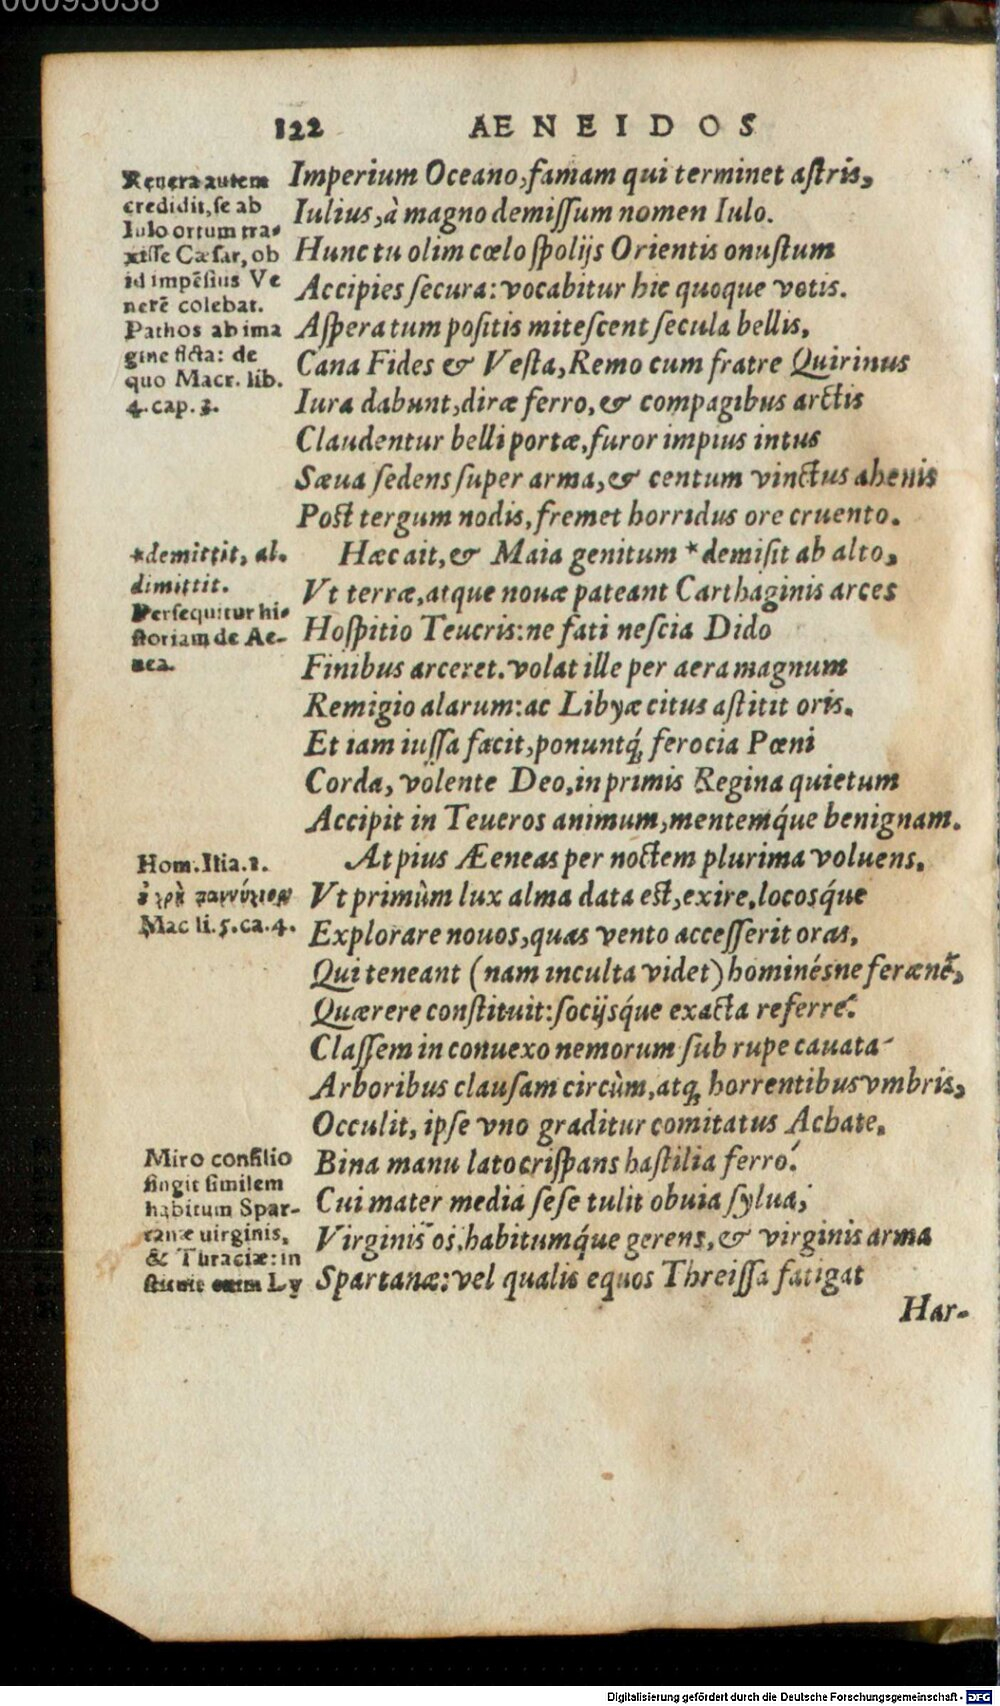 00093038
122 AENEIDOS
Reuera autem
credidit, se ab
Iulo ortum tra-
xisse Cæsar, ob
id impēsius Ve
nerē colebat.
Pathos ab ima
gine ficta: de
quo Macr. lib.
4. cap. 3.
Imperium Oceano, famam qui terminet astris,
Iulius, à magno demissum nomen Iulo.
Hunc tu olim cœlo spolijs Orientis onustum
Accipies secura: vocabitur hic quoque votis.
Aspera tum positis mitescent secula bellis,
Cana Fides & Vesta, Remo cum fratre Quirinus
Iura dabunt, diræ ferro, & compagibus arctis
Claudentur belli portæ, furor impius intus
Sæua sedens super arma, & centum vinctus ahenis
Post tergum nodis, fremet horridus ore cruento.
*demittit, al.
dimittit.
Persequitur hi-
storiam de Ae-
nea.
Hæc ait, & Maia genitum *demisit ab alto,
Vt terræ, atque nouæ pateant Carthaginis arces
Hospitio Teucris: ne fati nescia Dido
Finibus arceret. volat ille per aera magnum
Remigio alarum: ac Libyæ citus astitit oris.
Et iam iussa facit, ponuntq́; ferocia Pœni
Corda, volente Deo, in primis Regina quietum
Accipit in Teucros animum, mentemq́ue benignam.
Hom. Ilia. 2.
Mac li. 5. ca. 4.
At pius Æeneas per noctem plurima voluens,
Vt primùm lux alma data est, exire, locosq́ue
Explorare nouos, quas vento accesserit oras,
Qui teneant (nam inculta videt) hominésne feræne,
Quærere constituit: socijsq́ue exacta referre.
Classem in conuexo nemorum sub rupe cauata
Arboribus clausam circùm, atq; horrentibus vmbris,
Occulit, ipse vno graditur comitatus Achate,
Miro consilio
fingit similem
habitum Spar-
tanæ uirginis,
& Thraciæ: in
stituit enim Ly
Bina manu lato crispans hastilia ferro.
Cui mater media sese tulit obuia sylua,
Virginis os, habitumq́ue gerens, & virginis arma
Spartanæ: vel qualis equos Threissa fatigat
Har-
Digitalisierung gefördert durch die Deutsche Forschungsgemeinschaft - DFG